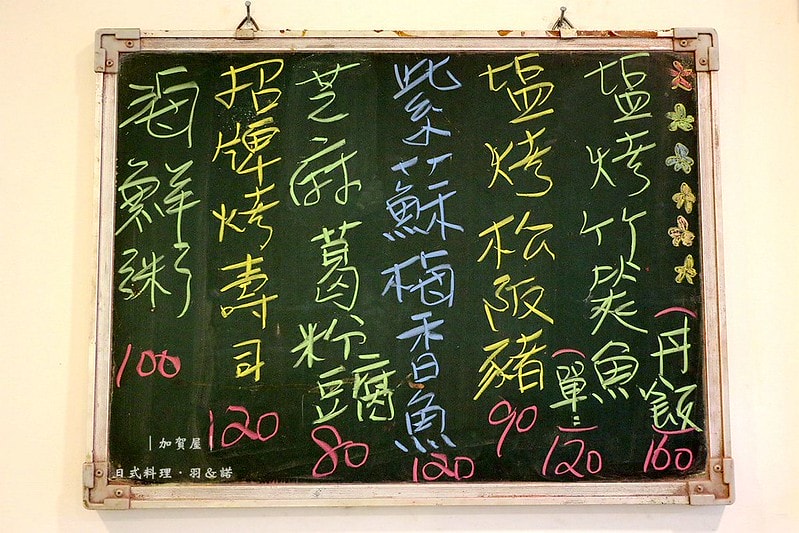 (丹飯) 160
塩烤竹筴魚
(單) 120
塩烤松阪豬 90
紫蘇梅香魚 120
芝麻葛粉豆腐 80
招牌烤壽司 120
海鮮粥 100
|加賀屋|
日式料理・羽&諾